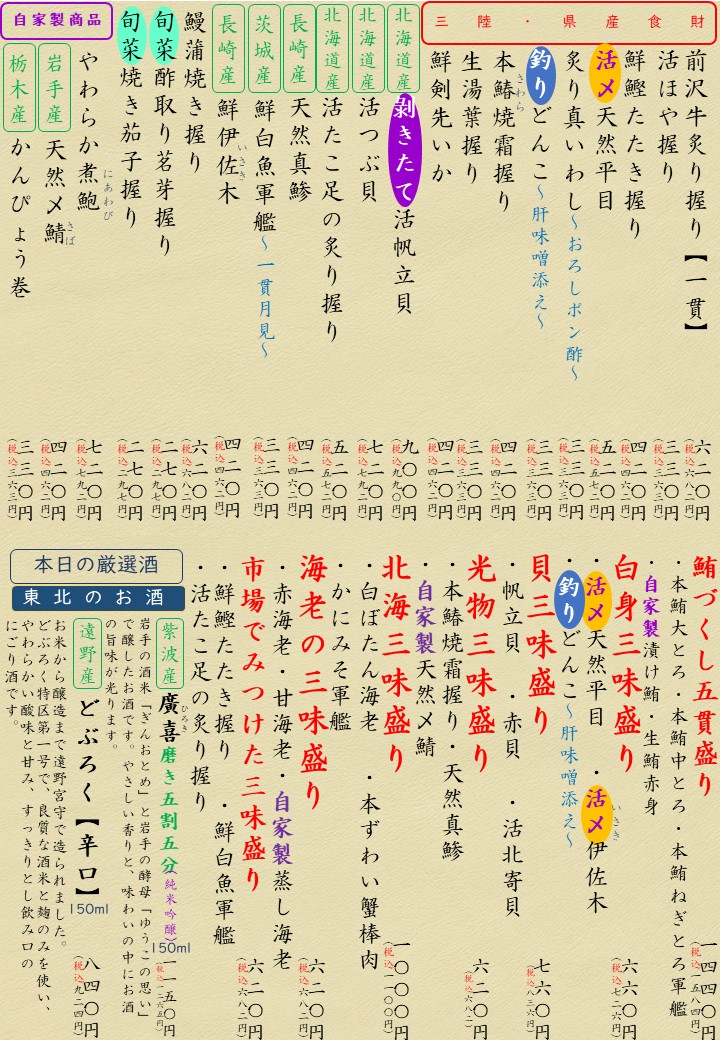 三陸・県産食財
前沢牛炙り握り【一貫】 六二〇円 (税込六八二円)
活ほや握り 三三〇円 (税込三六三円)
鮮鰹たたき握り 四二〇円 (税込四六二円)
活〆天然平目 五二〇円 (税込五七二円)
炙り真いわし～おろしポン酢～ 三三〇円 (税込三六三円)
釣りどんこ～肝味噌添え～ 三三〇円 (税込三六三円)
本鰆焼霜握り さわら 四二〇円 (税込四六二円)
生湯葉握り 三三〇円 (税込三六三円)
鮮剣先いか 四二〇円 (税込四六二円)
北海道産 剥きたて活帆立貝 九〇〇円 (税込九九〇円)
北海道産 活つぶ貝 七二〇円 (税込七九二円)
北海道産 活たこ足の炙り握り 五二〇円 (税込五七二円)
長崎産 天然真鯵 四二〇円 (税込四六二円)
茨城産 鮮白魚軍艦～一貫月見～ 三三〇円 (税込三六三円)
長崎産 鮮伊佐木 いさき 四二〇円 (税込四六二円)
鰻蒲焼き握り 六二〇円 (税込六八二円)
旬菜酢取り茗芽握り 二七〇円 (税込二九七円)
旬菜焼き茄子握り 二七〇円 (税込二九七円)
自家製商品
やわらか煮鮑 にあわび 七二〇円 (税込七九二円)
岩手産 天然〆鯖 さば 四二〇円 (税込四六二円)
栃木産 かんぴょう巻 三三〇円 (税込三六三円)
鮪づくし五貫盛り 一四四〇円 (税込一五八四円)
・本鮪大とろ・本鮪中とろ・本鮪ねぎとろ軍艦
・自家製漬け鮪・生鮪赤身
白身三味盛り 六六〇円 (税込七二六円)
・活〆天然平目 ・活〆伊佐木 いさき
・釣りどんこ～肝味噌添え～
貝三味盛り 七六〇円 (税込八三六円)
・帆立貝 ・赤貝 ・活北寄貝
光物三味盛り 六二〇円 (税込六八二)
・本鰆焼霜握り・天然真鯵
・自家製天然〆鯖
北海三味盛り 一〇〇〇円 (税込一一〇〇円)
・白ぼたん海老 ・本ずわい蟹棒肉
・かにみそ軍艦
海老の三味盛り 六二〇円 (税込六八二円)
・赤海老・甘海老・自家製蒸し海老
市場でみつけた三味盛り 六二〇円 (税込六八二円)
・鮮鰹たたき握り ・鮮白魚軍艦
・活たこ足の炙り握り
本日の厳選酒
東北のお酒
紫波産 廣喜 ひろき 磨き五割五分(純米吟醸) 150ml 一一五〇円 (税込一二六五円)
岩手の酒米「ぎんおとめ」と岩手の酵母「ゆうこの思い」
で醸したお酒です。やさしい香りと、味わいの中にお酒
の旨味が光ります。
遠野産 どぶろく【辛口】 150ml 八四〇円 (税込九二四円)
お米から醸造まで遠野宮守で造られました。
どぶろく特区第一号で、良質な酒米と麹のみを使い、
やわらかい酸味と甘み、すっきりとし飲み口の
にごり酒です。